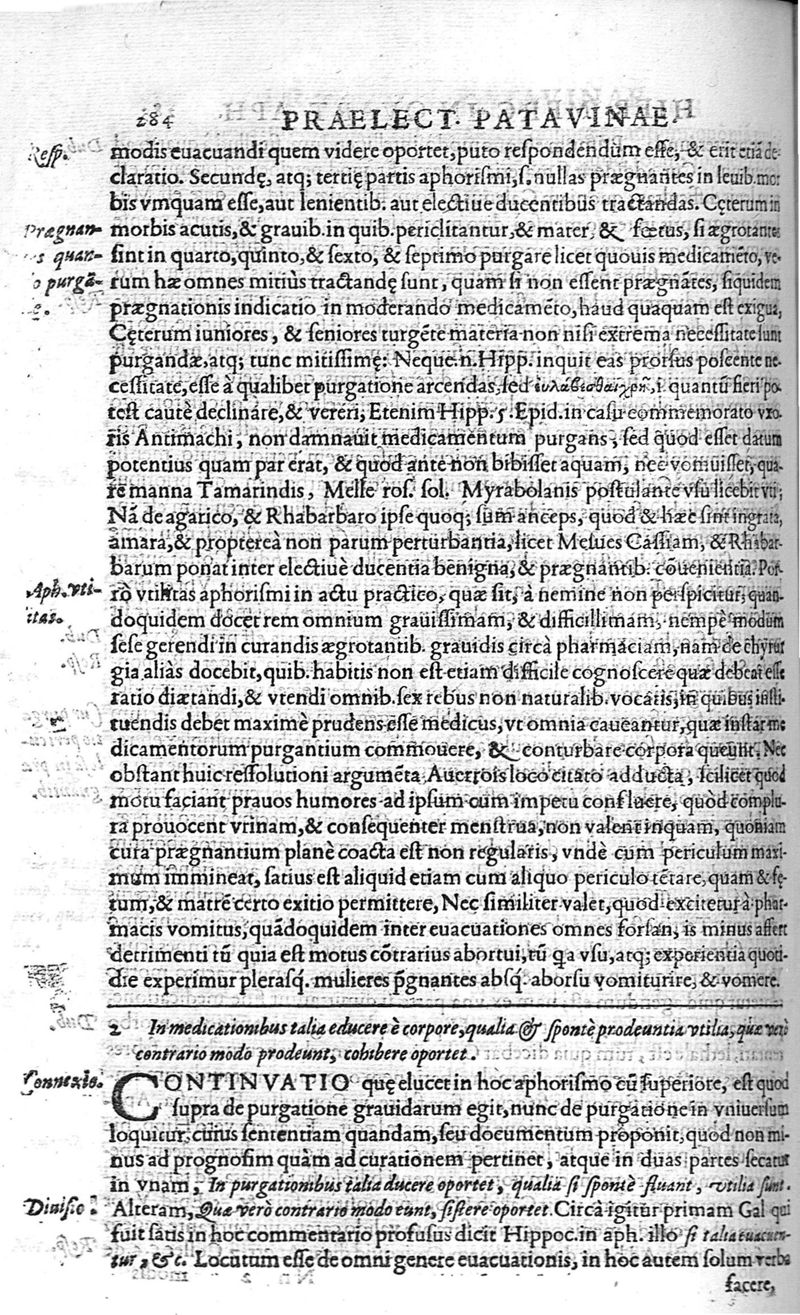 284 PRAELECT. PATAVINAE
Resp.
modis euacuandi quem videre oportet, puto respondendum esse, & erit etiã de-
claratio. Secundę, atq; tertię partis aphorismi, s. nullas prægnantes in leuib. mor
bis vmquam esse, aut lenientib. aut electiue ducentibus tractandas. Cęterum in
Prægnan-
morbis acutis, & grauib. in quib. periclitantur, & mater, & fœtus, si ægrotantes
s quan-
sint in quarto, quinto, & sexto, & septimo purgare licet quouis medicamẽto, ve-
o purgã-
rum hæ omnes mitiùs tractandę sunt, quam si non essent prægnãtes, siquidem
e.
prægnationis indicatio in moderando medicamẽto, haud quaquam est exigua,
Cęterum iuniores, & seniores turgẽte materia non nisi extrema necessitate sunt
purgandæ, atq; tunc mitissimę: Neque .n. Hipp. inquit eas prorsus poscente ne-
cessitate, esse à qualibet purgatione arcendas, sed .i. quantũ fieri po-
test cautè declinare, & vereri; Etenim Hipp. 5. Epid. in casu commemorato vxo-
ris Antimachi, non damnauit medicamentum purgans, sed quod esset datum
potentius quam par erat, & quod ante non bibisset aquam, nec vomuisset, qua-
re manna Tamarindis, Melle ros. sol. Myrabolanis postulante vsu licebit vti;
Nã de agarico, & Rhabarbaro ipse quoq; sum anceps, quod & hæc sint ingrata,
amara, & proptereà non parum perturbantia, licet Mesues Cassiam, & Rhabar-
barum ponat inter electiuè ducentia benigna, & prægnantib. cõuenientia. Por-
Aph. vti-
rò vtilitas aphorismi in actu practico, quæ sit, à nemine non perspicitur, quan-
itas.
doquidem docet rem omnium grauissimam, & difficillimam, nempè modum
sese gerendi in curandis ægrotantib. grauidis circà pharmaciam, nam de chyrur
gia aliàs docebit, quib. habitis non est etiam difficile cognoscere quæ debeat esse
ratio diætandi, & vtendi omnib. sex rebus non naturalib. vocatis, in quibus insti-
tuendis debet maximè prudens esse medicus, vt omnia caueantur, quæ instar me
dicamentorum purgantium commouere, & conturbare corpora queunt. Nec
obstant huic ressolutioni argumẽta Auerrois loco citato adducta, scilicet quod
motu faciant prauos humores ad ipsum cum impetu confluere, quòd complu-
ra prouocent vrinam, & consequenter menstrua, non valent inquam, quoniam
cura prægnantium planè coacta est non regularis, vndè cum periculum maxi-
mum immineat, satius est aliquid etiam cum aliquo periculo tẽtare, quam & fę-
tum, & matrẽ certo exitio permittere, Nec similiter valet, quod excitetur à phar-
macis vomitus, quãdoquidem inter euacuationes omnes forsan, is minus affert
detrimenti tũ quia est motus cõtrarius abortui, tũ qa vsu, atq; experientia quoti-
die experimur plerasq. mulieres pgnantes absq. aborsu vomiturire, & vomere.
2 In medicationibus talia educere è corpore, qualia & spontè prodeuntia vtilia, quæ verò
contrario modo prodeunt, cohibere oportet.
Connexio.
CONTINVATIO quę elucet in hoc aphorismo cũ superiore, est quod
supra de purgatione grauidarum egit, nunc de purgatione in vniuersum
loquitur, cuius sententiam quandam, seu documentum proponit, quod non mi-
nus ad prognosim quàm ad curationem pertinet, atque in duas partes secatur
in vnam, In purgationibus talia ducere oportet, qualia si spontè fluant, vtilia sunt.
Diuisio.
Alteram, Quæ verò contrario modo eunt, sistere oportet. Circà igitur primam Gal qui
fuit satis in hoc commentario profusus dicit Hippoc. in aph. illo si talia euacuen-
tur, &c. Locutum esse de omni genere euacuationis, in hoc autem solum verba
facere,